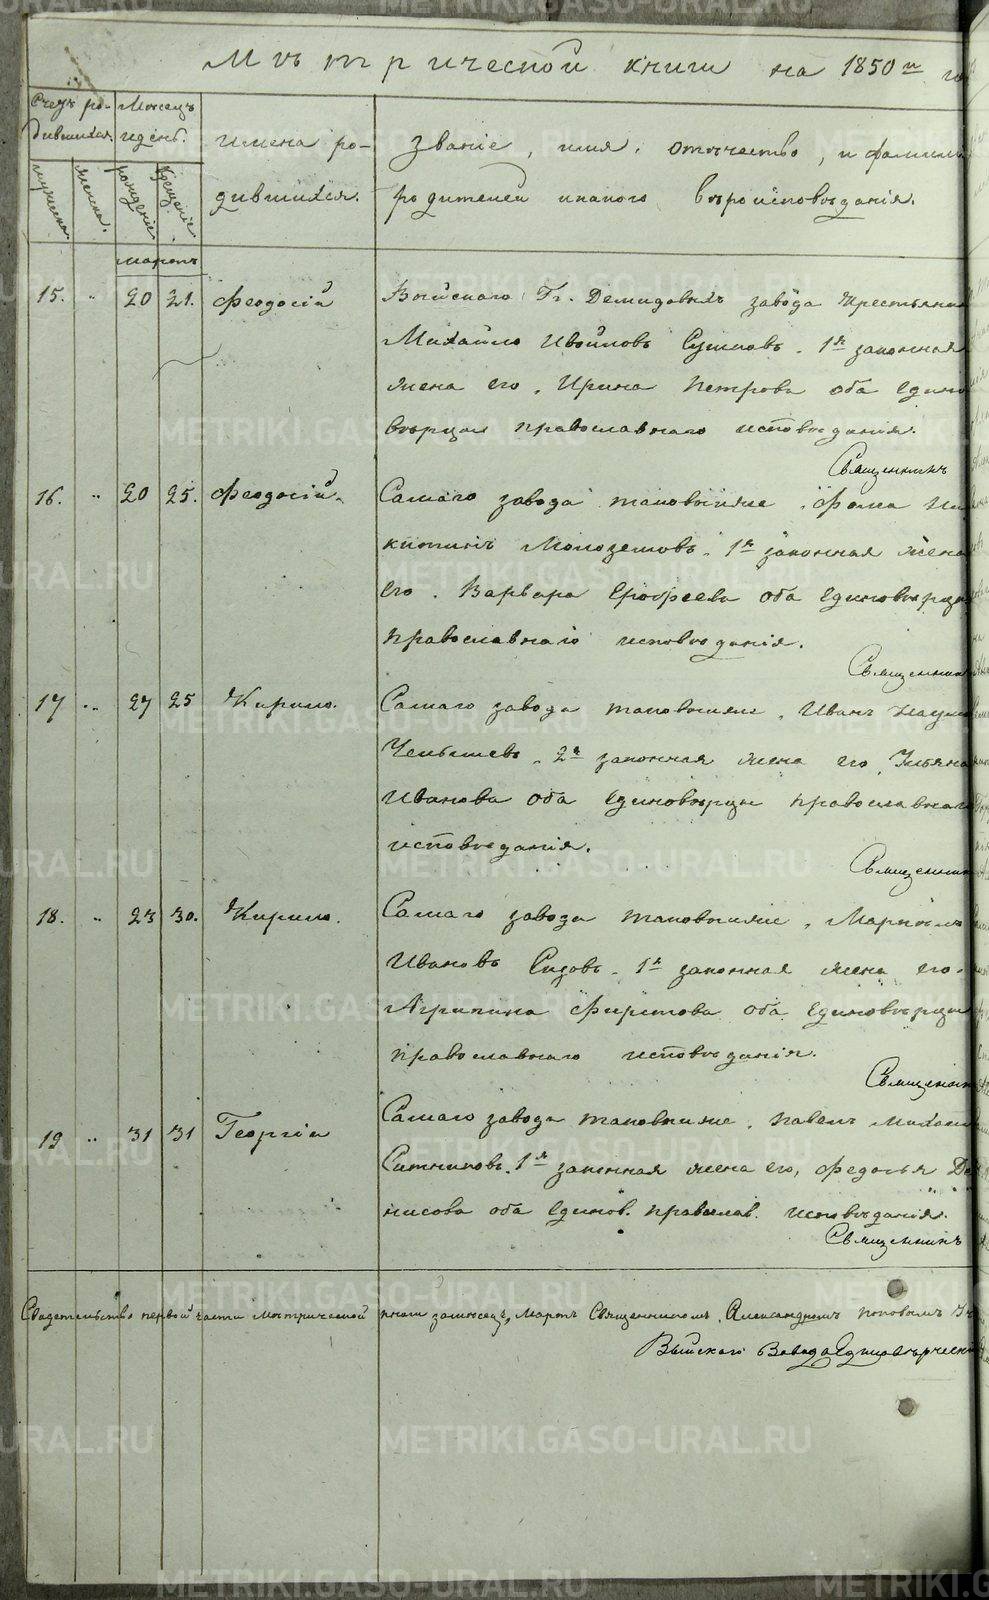 Метрической книги на 1850й го
Счетъ ро- Месецъ
дившихся. и день. имена ро- званіе, имя, отечество, и фамилія
мужеска. женска. рожденіе крещеніе. дившихся. родителей и какого въроисповъданія.
мартъ
15. " 20 21. Феодосій Выйскаго Гг. Демидовыхъ завода крестьянинъ
Михайло Ивойловъ 1я законная
жена его, Ирина Петрова оба едино
върцы православнаго исповъданія.
Священникъ
16. " 20 25. Феодосій. Самаго завода таковыйже, Фома Ни
китинъ 1я законная жена
его, Варвара Ерофеева оба единовърцы
православнаго исповъданія.
Священник
17 " 27 25 Кирило. Самаго завода таковыйже, Иванъ Наумо
2я законная жена его, Ульяна
Иванова оба единовърцы православнаго
исповъданія.
Священник
18. " 23 30. Кирило. Самаго завода таковыйже,
Ивановъ Сизовъ, 1я законная жена его,
Агрипина Фирсова оба единовърцы
православнаго исповъданія.
Священник
19 " 31 31 Георгій Самаго завода таковыйже, Павелъ Михаил
Ситниковъ, 1я законная жена его, Федосья Де
нисова оба единов. православ. исповъданія.
Священникъ
Свидетельство первой части метрической книги замесецъ Мартъ Священникомъ Александромъ Поповымъ
Выйскаго Завода Единовърческ
METRIKI.GASO-URAL.RU